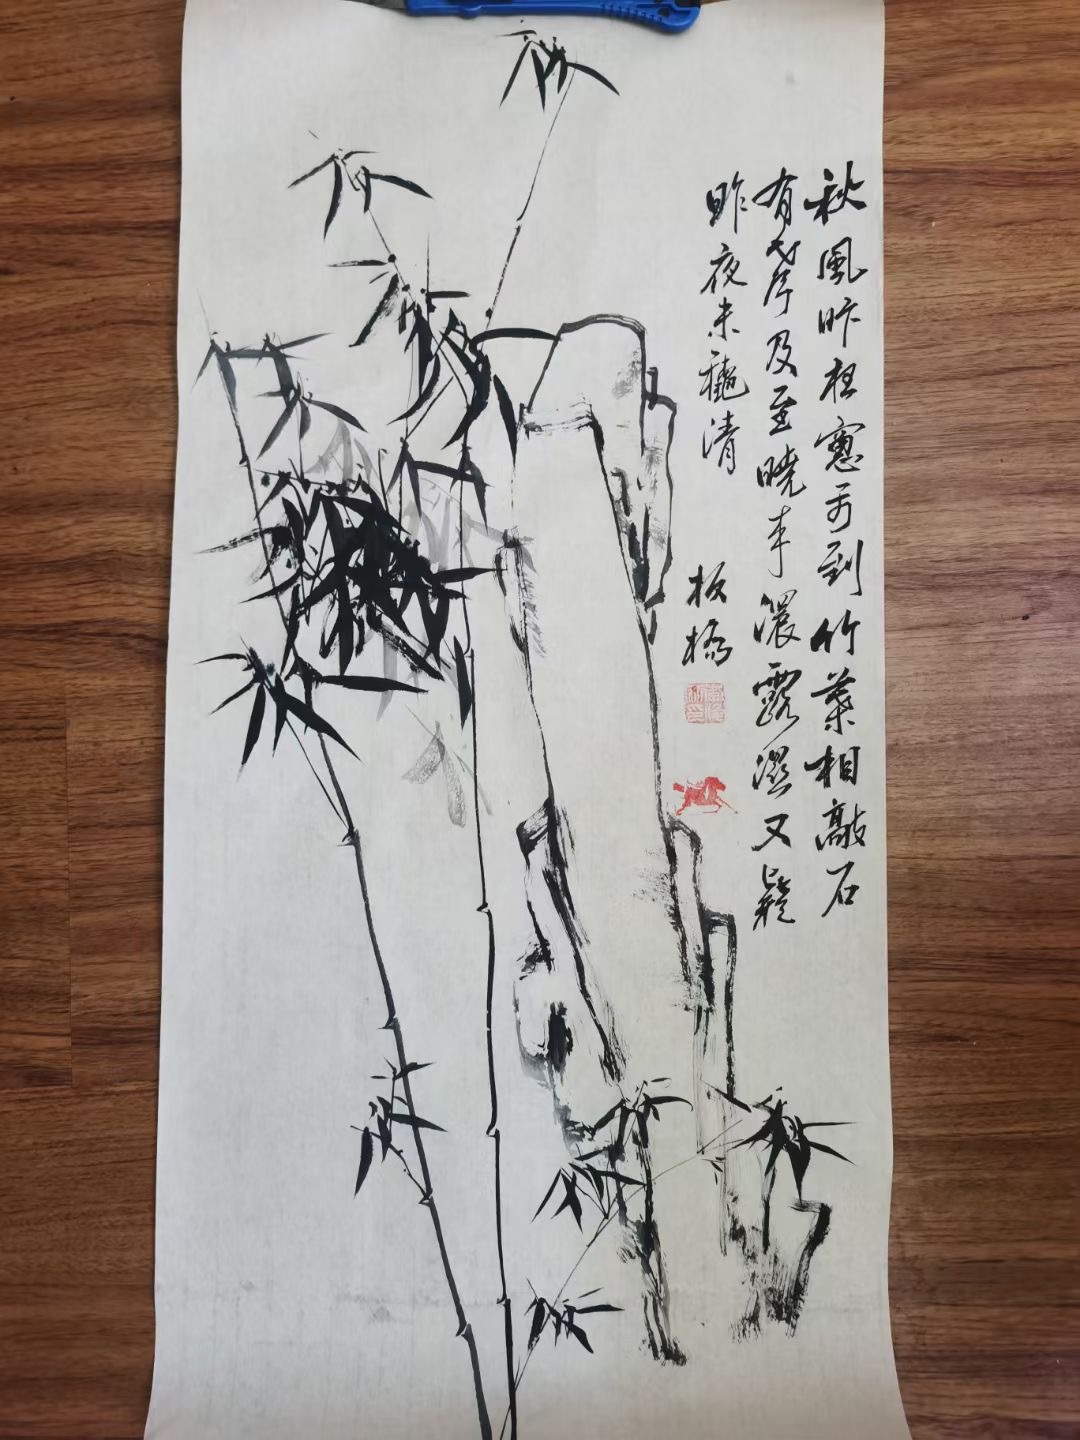 秋風昨窻前到竹葉相敲石
有聲及至曉来濃露濕又疑
昨夜未穐清
板橋